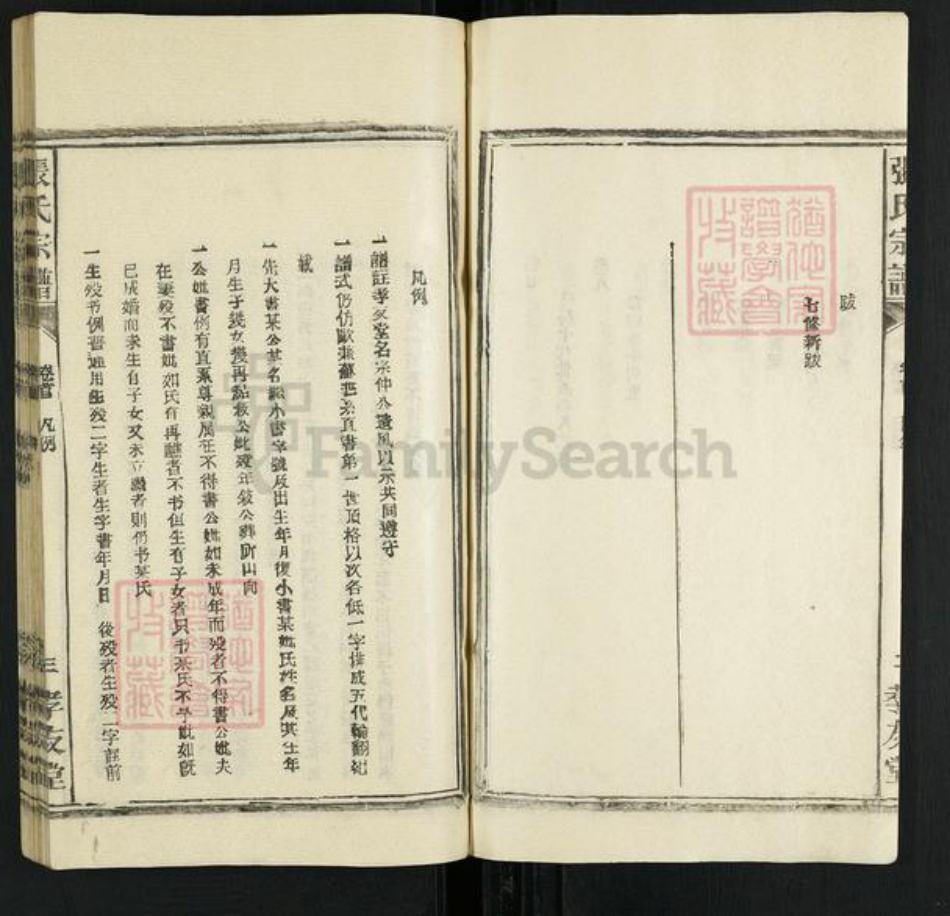 張氏宗譜
跋
七修新跋
猶他家譜學會收藏
孝友堂
凡例
一譜註孝友堂名宗仲公遺風以示共同遵守
一譜式仍仿歐蘇世系直書第一世頂格以次各低一字排成五代輪翻紀
載
一先大書某公某名繼小書字號及出生年月復小書某妣氏姓名及其生年
月生子幾女幾再點叙公妣歿年叙公葬所山向
一公妣書例有直系尊親屬在不得書公妣如未成年而歿者不得書公妣夫
在妻歿不書妣如氏有再醮者不书但生有子女者只书某氏不予妣如旣
已成婚而未生有子女又未立嗣者則仍书某氏
一生歿书例普通用生歿二字生者生字書年月日 後歿者生歿二字註前
張氏宗譜
卷首 凡例
三 孝友堂
猶他家譜學會收藏
FamilySearch